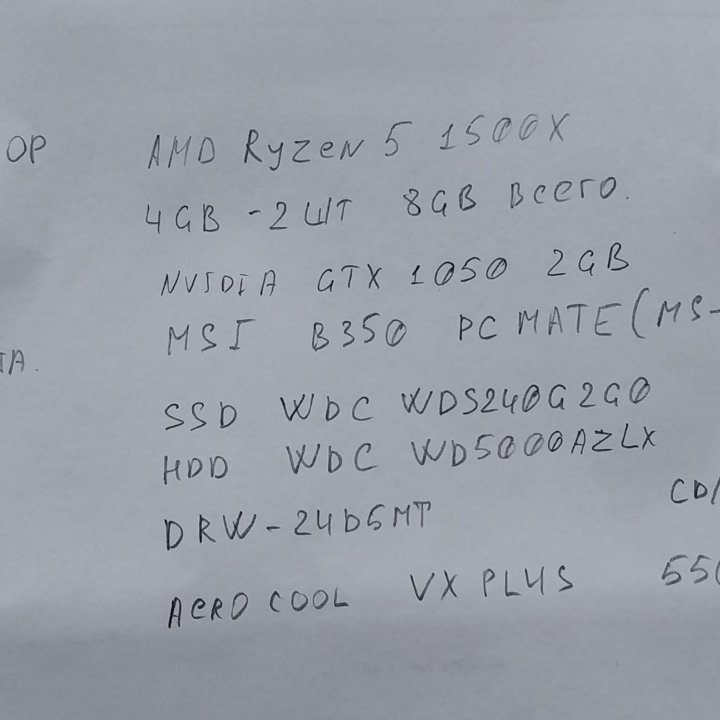 ОР AMD Ryzen 5 1500X
4GB - 2 ШТ 8GB Всего.
NVIDIA GTX 1050 2GB
MSI B350 PC MATE (MS-
ТА.
SSD WDC WDS240G2G0
HDD WDC WD5000AZLX
DRW-24D5MT CD/
AERO COOL VX PLUS 550